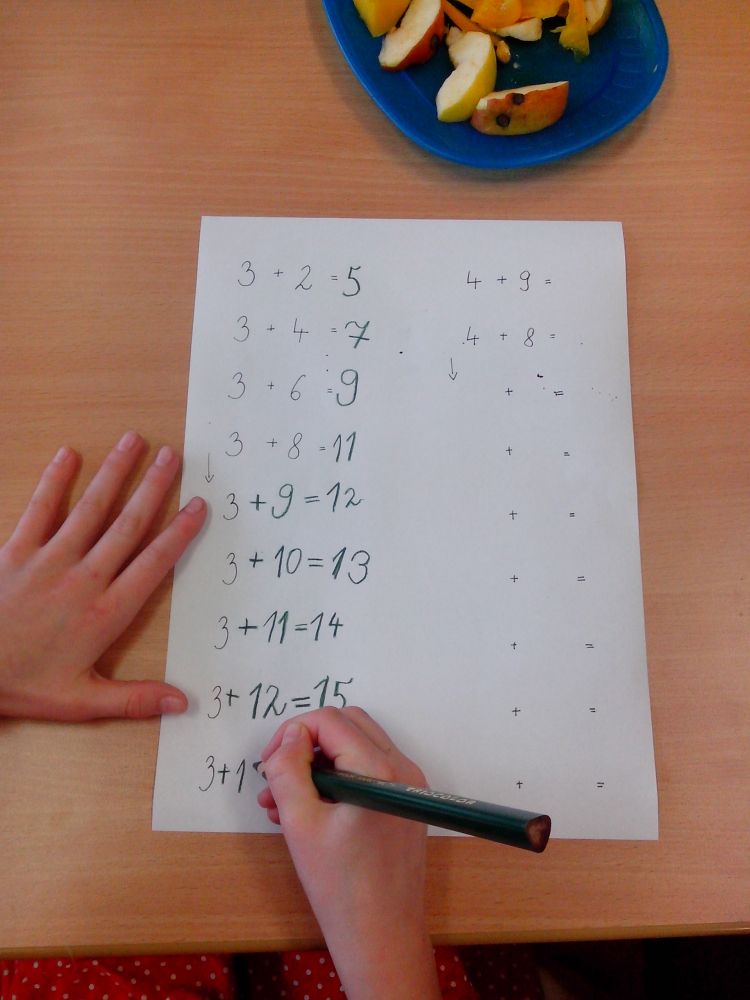 3 + 2 = 5
3 + 4 = 7
3 + 6 = 9
3 + 8 = 11
↓
3 + 9 = 12
3 + 10 = 13
3 + 11 = 14
3 + 12 = 15
3 + 1
4 + 9 =
4 + 8 =
↓
+ =
+ =
+ =
+ =
+ =
+ =
+ =
TRISCOLOR